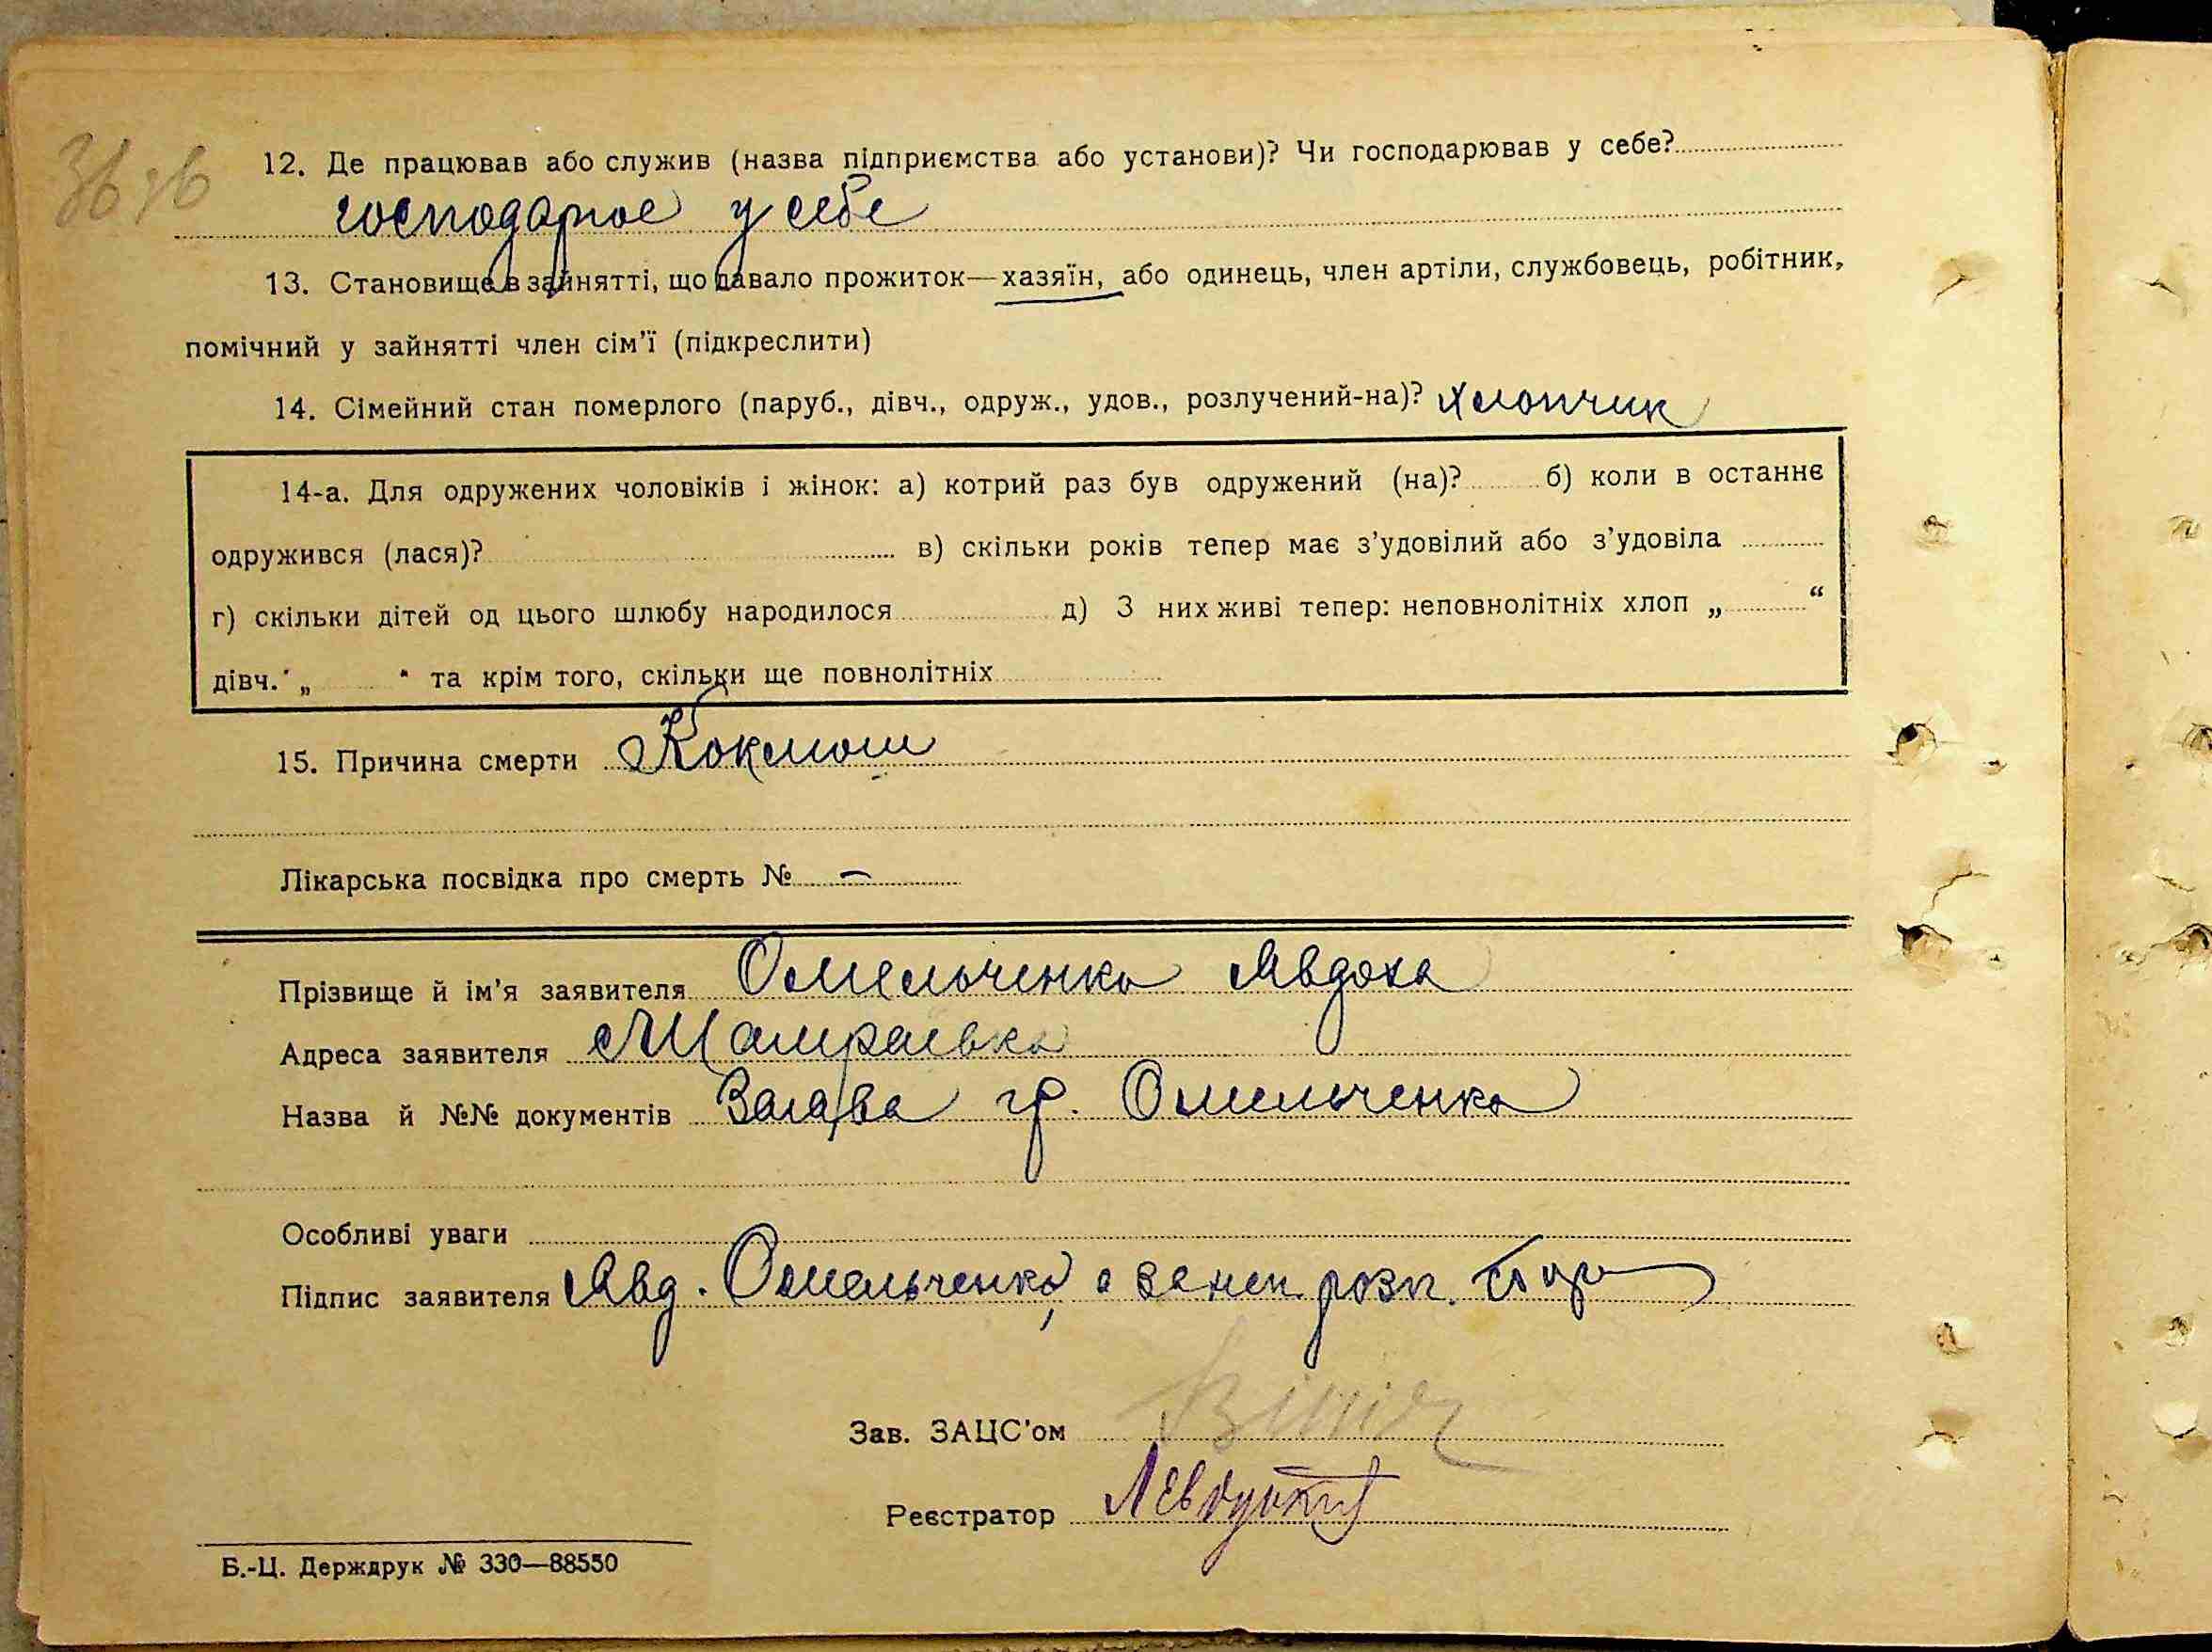 12. Де працював або служив (назва підприємства або установи)? Чи господарював у себе?
господарює у себе
13. Становище в зайнятті, що давало прожиток—хазяїн, або одинець, член артіли, службовець, робітник,
помічний у зайнятті член сім'ї (підкреслити)
14. Сімейний стан померлого (паруб., дівч., одруж., удов., розлучений-на)? хлопчик
14-а. Для одружених чоловіків і жінок: а) котрий раз був одружений (на)? б) коли в останнє
одружився (лася)? в) скільки років тепер має з'удовілий або з'удовіла
г) скільки дітей од цього шлюбу народилося д) З них живі тепер: неповнолітніх хлоп „ “
дівч. „ “ та крім того, скільки ще повнолітніх
15. Причина смерти Коклюш
Лікарська посвідка про смерть № —
Прізвище й ім'я заявителя Омельченко Явдоха
Адреса заявителя Шамраєвка
Назва й №№ документів Заява гр. Омельченко
Особливі уваги
Підпис заявителя Явд. Омельченко, а за неп. розп.
Зав. ЗАЦС'ом
Реєстратор
Б.-Ц. Держдрук № 330—88550